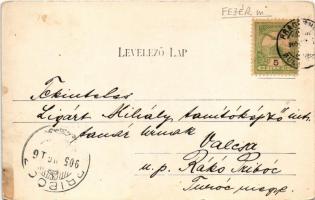 FEJÉR m.
LEVELEZŐ LAP
5
Tekintetes
Ligárt Mihály tanítóképző int.
tanár úrnak
Valcsa
u. p. Rákó Pribóc
Turóc megye.
PRIBOC
905